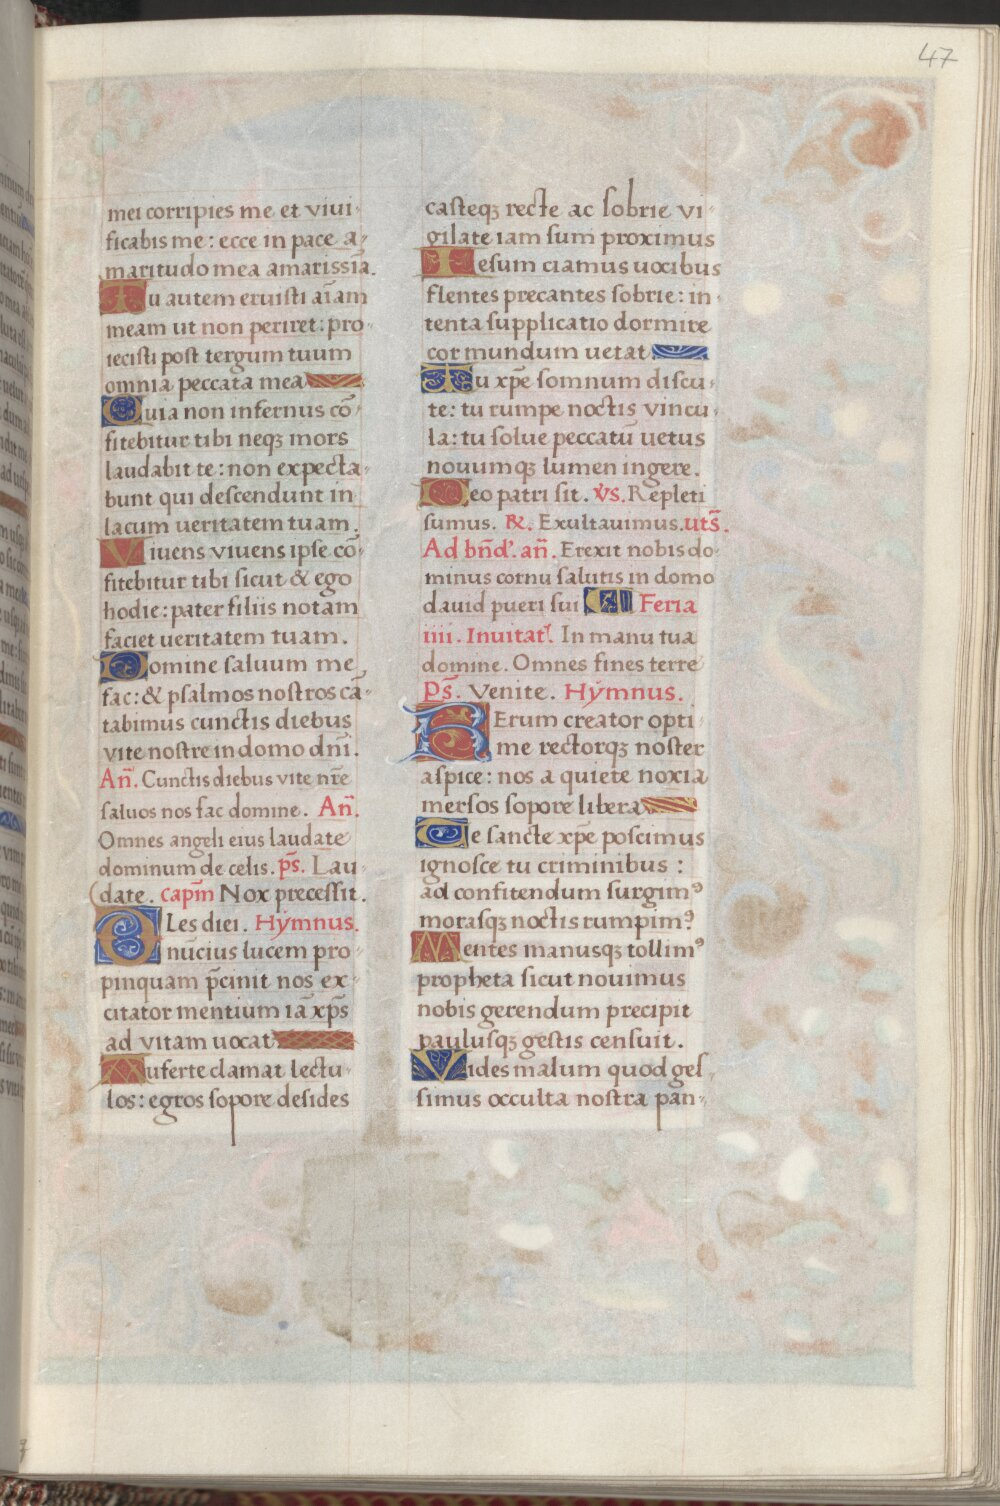 47
mei corripies me et viui-
ficabis me: ecce in pace a-
maritudo mea amarissīa.
Tu autem eruisti aīam
meam ut non periret: pro-
iecisti post tergum tuum
omnia peccata mea
Quia non infernus cō-
fitebitur tibi neqꝫ mors
laudabit te: non expecta-
bunt qui descendunt in
lacum ueritatem tuam.
Viuens viuens ipse cō-
fitebitur tibi sicut & ego
hodie: pater filiis notam
faciet ueritatem tuam.
Domine saluum me
fac: & psalmos nostros cā-
tabimus cunctis diebus
vite nostre in domo dn̄i.
An̄. Cunctis diebus vite nr̄e
saluos nos fac domine. An̄.
Omnes angeli eius laudate
dominum de celis. ps̄. Lau-
date. capm̄ Nox precessit.
Ales diei. Hẏmnus.
nūcius lucem pro-
pinquam p̄cinit nos ex-
citator mentium iā xp̄s
ad vitam uocat
Auferte clamat lectu-
los: egros sopore desides
casteqꝫ recte ac sobrie vi-
gilate iam sum proximus
Iesum ciamus uocibus
flentes precantes sobrie: in-
tenta supplicatio dormire
cor mundum uetat
Tu xp̄e somnum discu-
te: tu rumpe noctis vincu-
la: tu solue peccatū uetus
nouumqꝫ lumen ingere.
Deo patri sit. v̄s. Repleti
sumus. ℟. Exultauimus. uts̄.
Ad bn̄d'. an̄. Erexit nobis do-
minus cornu salutis in domo
dauid pueri sui Feria
iiii. Inuitat'. In manu tua
domine. Omnes fines terre
Ps̄. Venite. Hẏmnus.
Rerum creator opti-
me rectorqꝫ noster
aspice: nos a quiete noxia
mersos sopore libera
Te sancte xp̄e poscimus
ignosce tu criminibus:
ad confitendum surgimꝰ
morasqꝫ noctis rumpimꝰ.
Mentes manusqꝫ tollimꝰ
propheta sicut nouimus
nobis gerendum precipit
paulusqꝫ gestis censuit.
Vides malum quod ges-
simus occulta nostra pan-